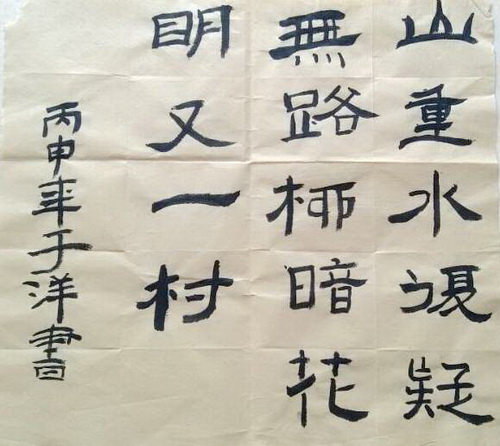 山重水復疑
無路柳暗花
明又一村
丙申年于洋書